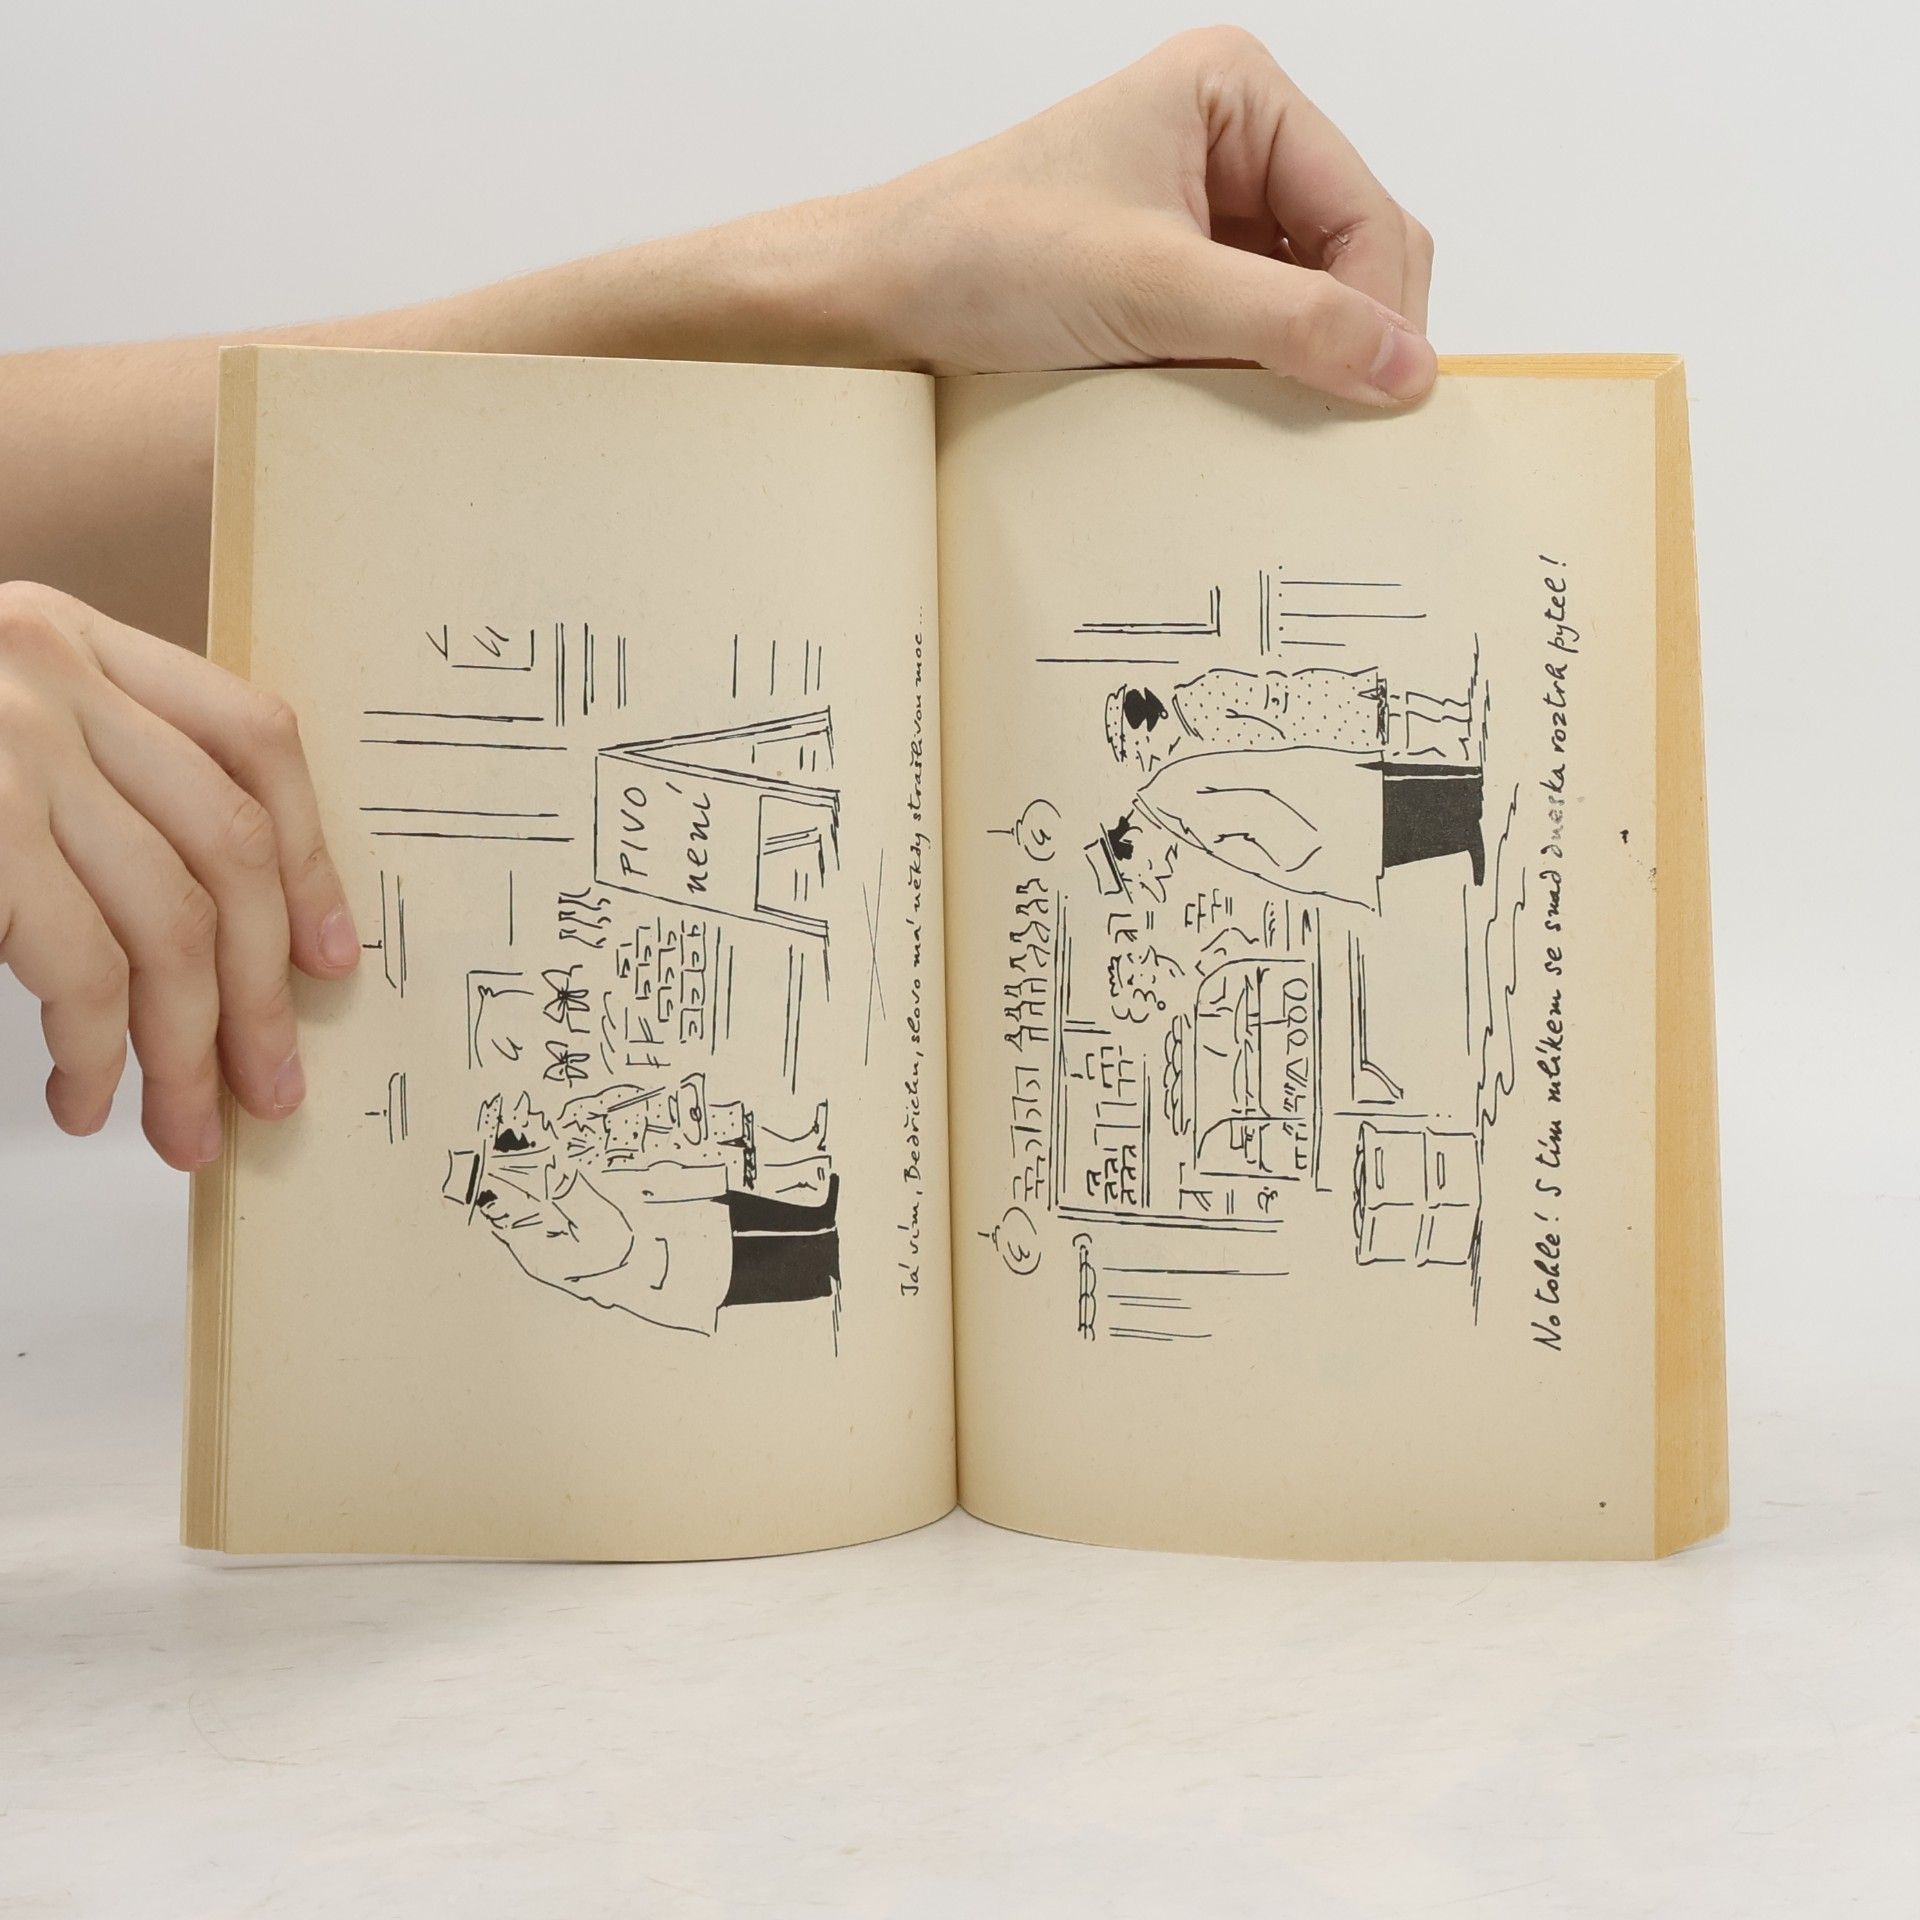 PIVO
není
Já vím, Bedřichu, slovo má někdy strašlivou moc...
No tohle! S tím mlíkem se snad dneska roztrh pytel!